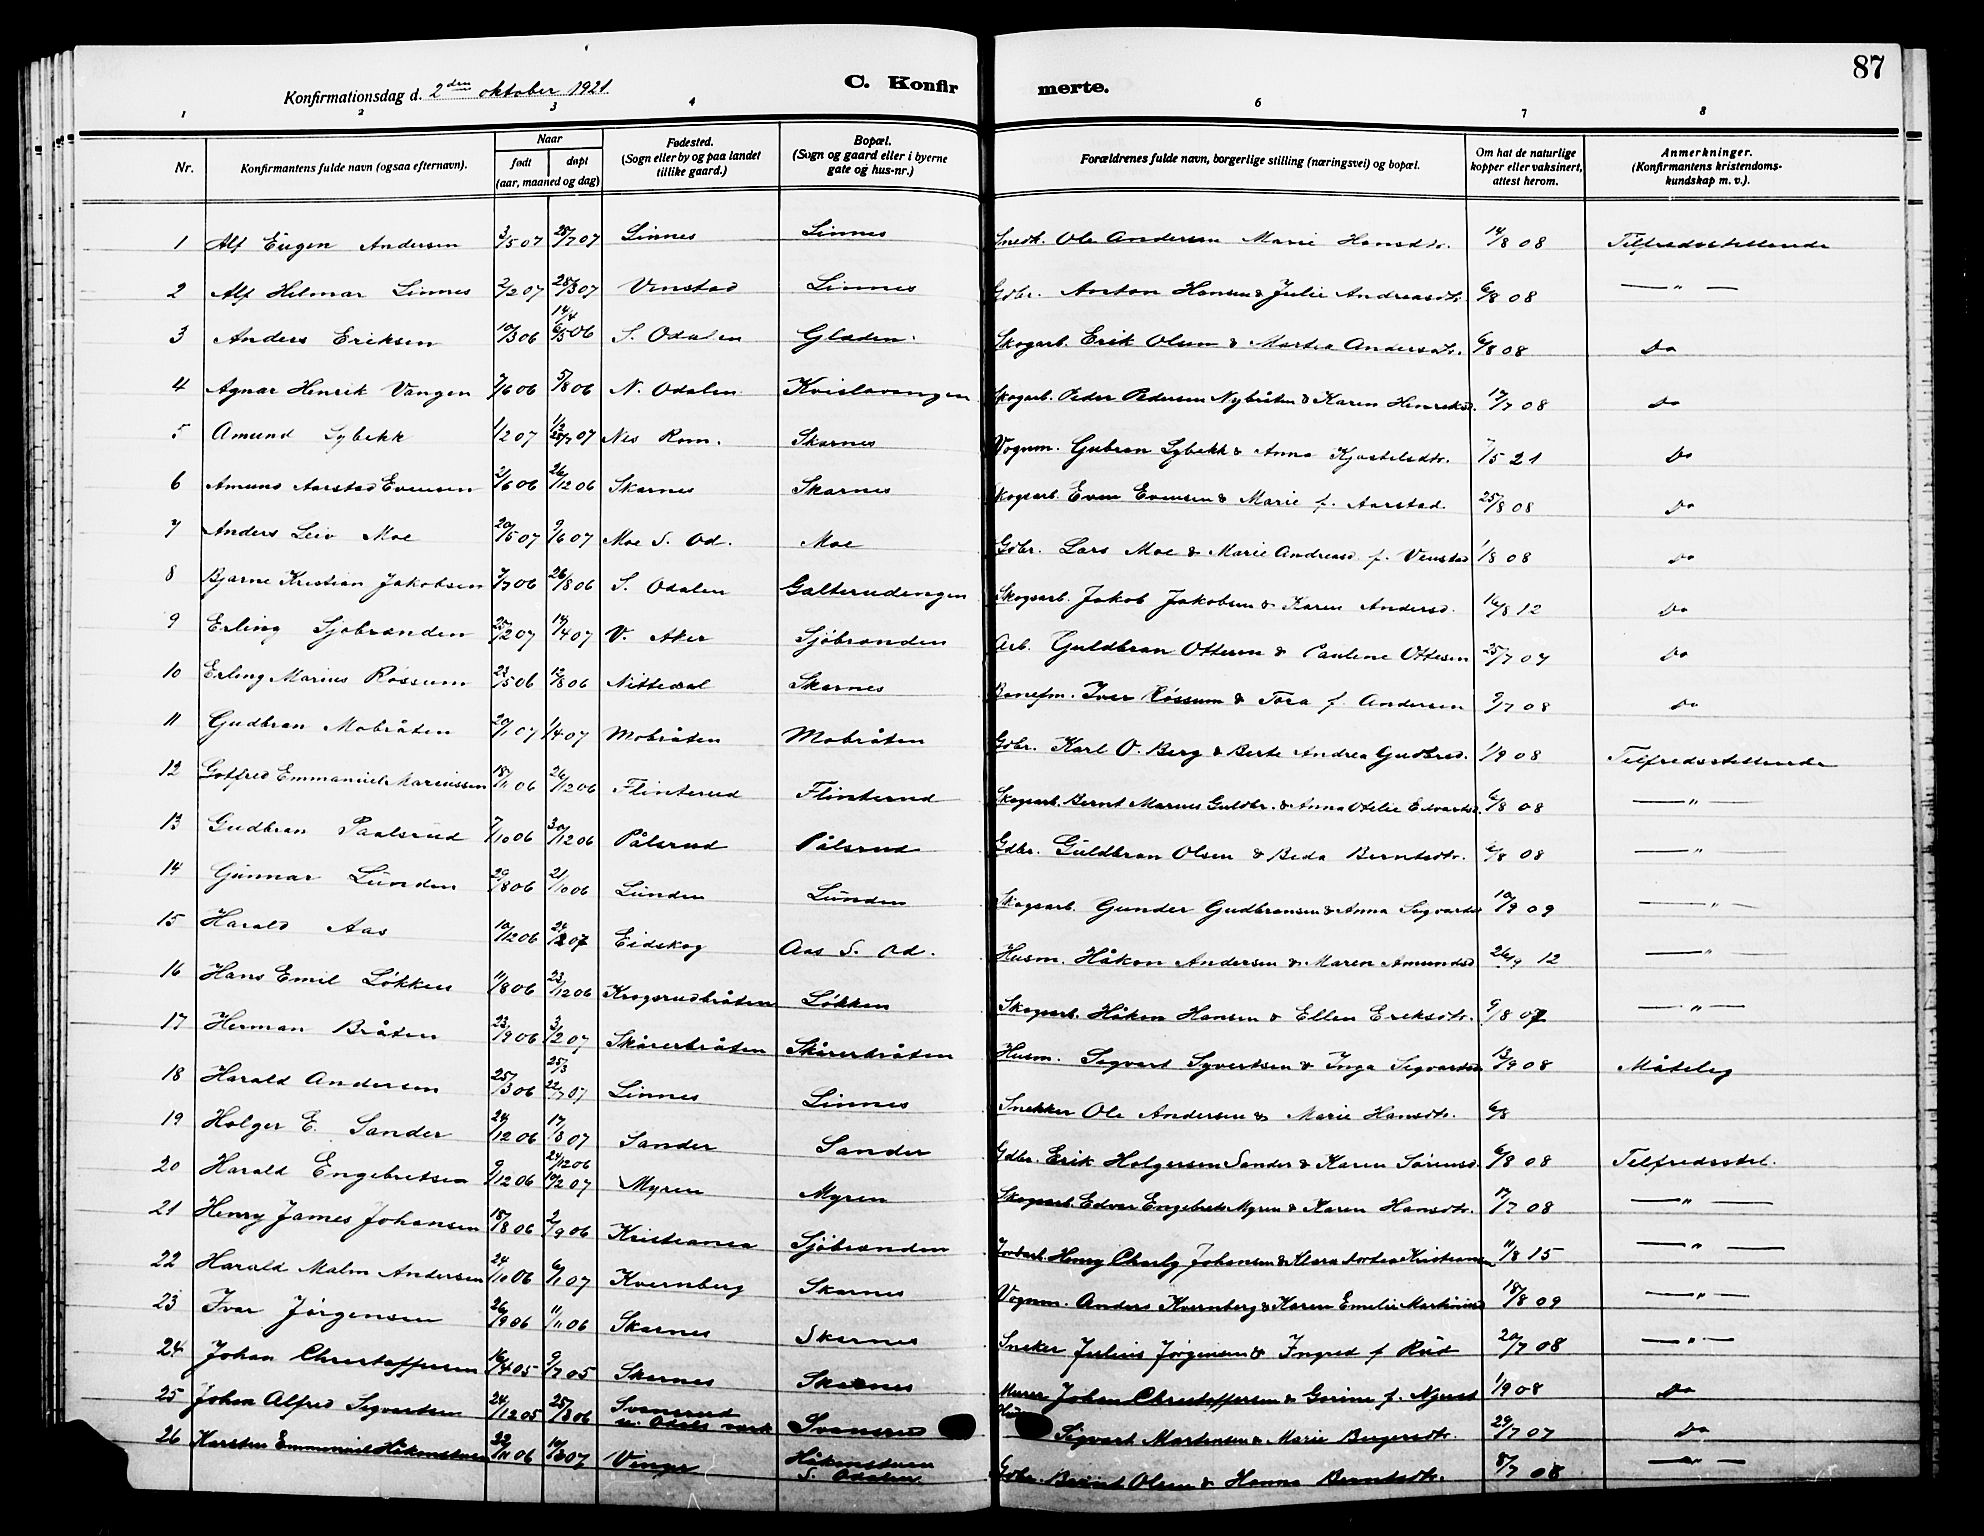 87
Konfirmationsdag d. 2den oktober 1921.
C. Konfir merte.
1 2 3 4 6 7 8
Nr. Konfirmantens fulde navn (ogsaa efternavn). Naar født døpt (aar, maaned og dag) Fødested. (Sogn eller by og paa landet tillike gaard.) Bopæl. (Sogn og gaard eller i byerne gate og hus-nr.) Forældrenes fulde navn, borgerlige stilling (næringsvei) og bopæl. Om hat de naturlige kopper eller vaksinert, attest herom. Anmerkninger. (Konfirmantens kristendoms-kundskap m. v.).
1 Alf Eugen Andersen 3/5 07 28/7 07 Linnes Linnes Snedk. Ole Andersen Marie Hansdtr. 14/8 08 Tilfredsstillende
2 Alf Hilmar Linnes 2/2 07 28/3 07 Vinstad Linnes Gdbr. Anton Hansen & Julie Andreasdtr. 6/8 08 — " —
3 Anders Eriksen 10/3 06 14/4 6/5 06 S. Odalen Gladen Skogarb. Erik Olsen & Martea Andersdtr. 6/8 08 Do
4 Agnar Henrik Vangen 7/6 06 5/8 06 N. Odalen Kvislavangen Skogarb. Peder Pedersen Nybråten & Karen Henriksd. 17/7 08 Do
5 Amund Lybekk 1/2 07 1/2 28/7 07 Nes Rom. Skarnes Vognm. Gudbran Lybekk & Anna Kjøstelsdtr. 7/5 21 Do
6 Amund Aarstad Evensen 2/6 06 26/12 06 Skarnes Skarnes Skogsarb. Even Evensen & Marie f. Aarstad. 25/8 08 Do
7 Anders Leiv Moe 20/5 07 9/6 07 Moe S. Od. Moe Gdbr. Lars Moe & Marie Andreasd. f. Venstad 1/8 08 Do
8 Bjarne Kristian Jakobsen 7/7 06 26/8 06 S. Odalen Galterudengen Skogsarb. Jakob Jakobsen & Karen Andersd. 16/8 12 Do
9 Erling Sjøbranden 25/2 07 14/4 07 V. Aker Sjöbranden Arb. Guldbran Ottesen & Pauline Ottesen 25/7 07 Do
10 Erling Marius Røssum 23/5 06 12/8 06 Nittedal Skarnes Banefm. Iver Røssum & Thea f. Andersen 9/7 08 Do
11 Gudbran Mobråten 20/1 07 1/4 07 Mobråten Mobråten Gdbr. Karl O. Berg & Berte Andrea Gudbrsd. 1/9 08 Tilfredsstillende
12 Gotfred Emmanuel Mariussen 18/11 06 26/12 06 Flinterud Flinterud Skogsarb. Bernt Marius Guldbr. & Anna Otelie Edvardsd. 6/8 08 — " —
13 Gudbran Paalsrud 7/10 06 30/12 06 Pålsrud Pålsrud Gdbr. Guldbran Olsen & Beda Berntsdtr. 6/8 08 — "
14 Gunnar Lunden 29/8 06 21/10 06 Lunden Lunden Skogsarb. Gunder Gudbransen & Anna Sigvartsd. 10/9 09 — " —
15 Harald Aas 10/12 06 Eidskog Aas S. Od. Husm. Håkon Andersen & Maren Amundsd. 26/9 12 — " —
16 Hans Emil Løkken 11/8 06 23/12 06 Krogsrudbråten Løkken Skogsarb. Håken Hansen & Ellen Eriksdtr. 9/8 07 — " —
17 Herman Bråten 23/9 06 3/2 07 Skårerbråten Skårerbråten Husm. Sigvart Syvertsen & Inga Sigvartsd. 13/9 08 Måtelig
18 Harald Andersen 25/3 06 25/3 22/7 07 Linnes Linnes Snekker Ole Andersen & Marie Hansdtr. 6/8
19 Holger E. Sander 24/12 06 17/3 07 Sander Sander Gdbr. Erik Holgersen Sander & Karen Sørensd. 6/8 08 Tilfredsstil.
20 Harald Engebretsen 9/12 06 24/12 06 10/2 07 Myren Myren Skogsarb. Edvar Engebrets Myren & Karen Hansdtr. 17/7 08 — " —
21 Henry James Johansen 18/8 06 2/9 06 Kristiania Sjöbranden Jordarb. Henry Charly Johansen & Klara Kristiansen 11/8 15 — " —
22 Harald Malm Andersen 24/10 06 6/1 07 Kvernberg Skarnes Vognm. Anders Kvernberg & Karen Emelie Martinusd. 18/8 09 — " —
23 Ivar Jørgensen 26/9 06 11/11 06 Skarnes Skarnes Sneker Julius Jørgensen & Ingred f Rud 20/7 08 — " —
24 Johan Christoffersen 16/4 05 9/7 05 Skarnes Skarnes Murer Johan Christoffersen & Gorine f. 1/9 08 Do
25 Johan Alfred Sigvartsen 24/12 05 25/3 06 Svanerud n. Odals verk Svanerud Sigvart Martensen & Marie Bergersdtr. 29/7 07 Do
26 Karsten Emmanuel Håkenstuen 22/11 06 10/3 07 Vinger Håkenstuen S. Odalen Gdbr. Bernt Olsen & Hanna Berntsdtr. 8/7 08 — " —